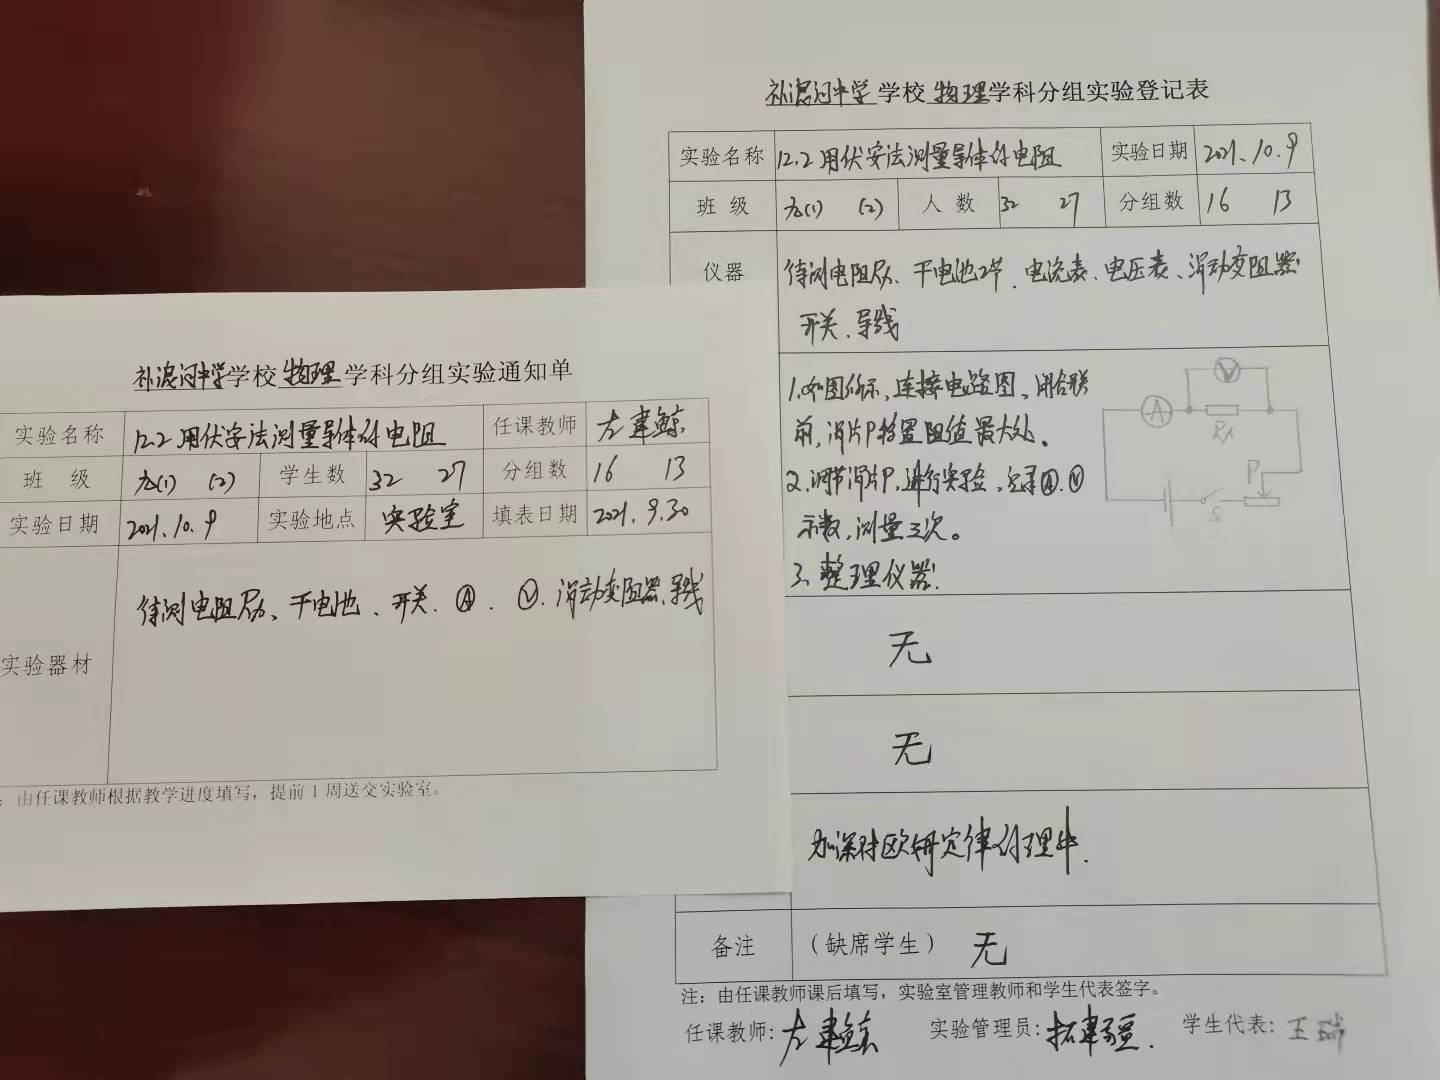 补浪河中学学校物理学科分组实验登记表
实验名称 12.2用伏安法测量导体的电阻 实验日期 2021.10.9
班级 九(1) (2) 人数 32 27 分组数 16 13
仪器 待测电阻Rx、干电池2节、电流表、电压表、滑动变阻器
开关、导线
1.如图所示,连接电路图,闭合联
前,滑片P移置阻值最大处。
2.调节滑片P,进行实验,记录Ⓐ、Ⓥ
示数,测量三次。
3.整理仪器.
A V Rx P S
无
无
加深对欧姆定律的理解.
备注 (缺席学生) 无
注:由任课教师课后填写,实验室管理教师和学生代表签字。
任课教师:左建鲸 实验管理员:拓建疆. 学生代表:王瑞
补浪河中学学校物理学科分组实验通知单
实验名称 12.2用伏安法测量导体的电阻 任课教师 左建鲸
班级 九(1) (2) 学生数 32 27 分组数 16 13
实验日期 2021.10.9 实验地点 实验室 填表日期 2021.9.30
实验器材 待测电阻Rx、干电池、开关、Ⓐ、Ⓥ、滑动变阻器、导线
:由任课教师根据教学进度填写,提前1周送交实验室。